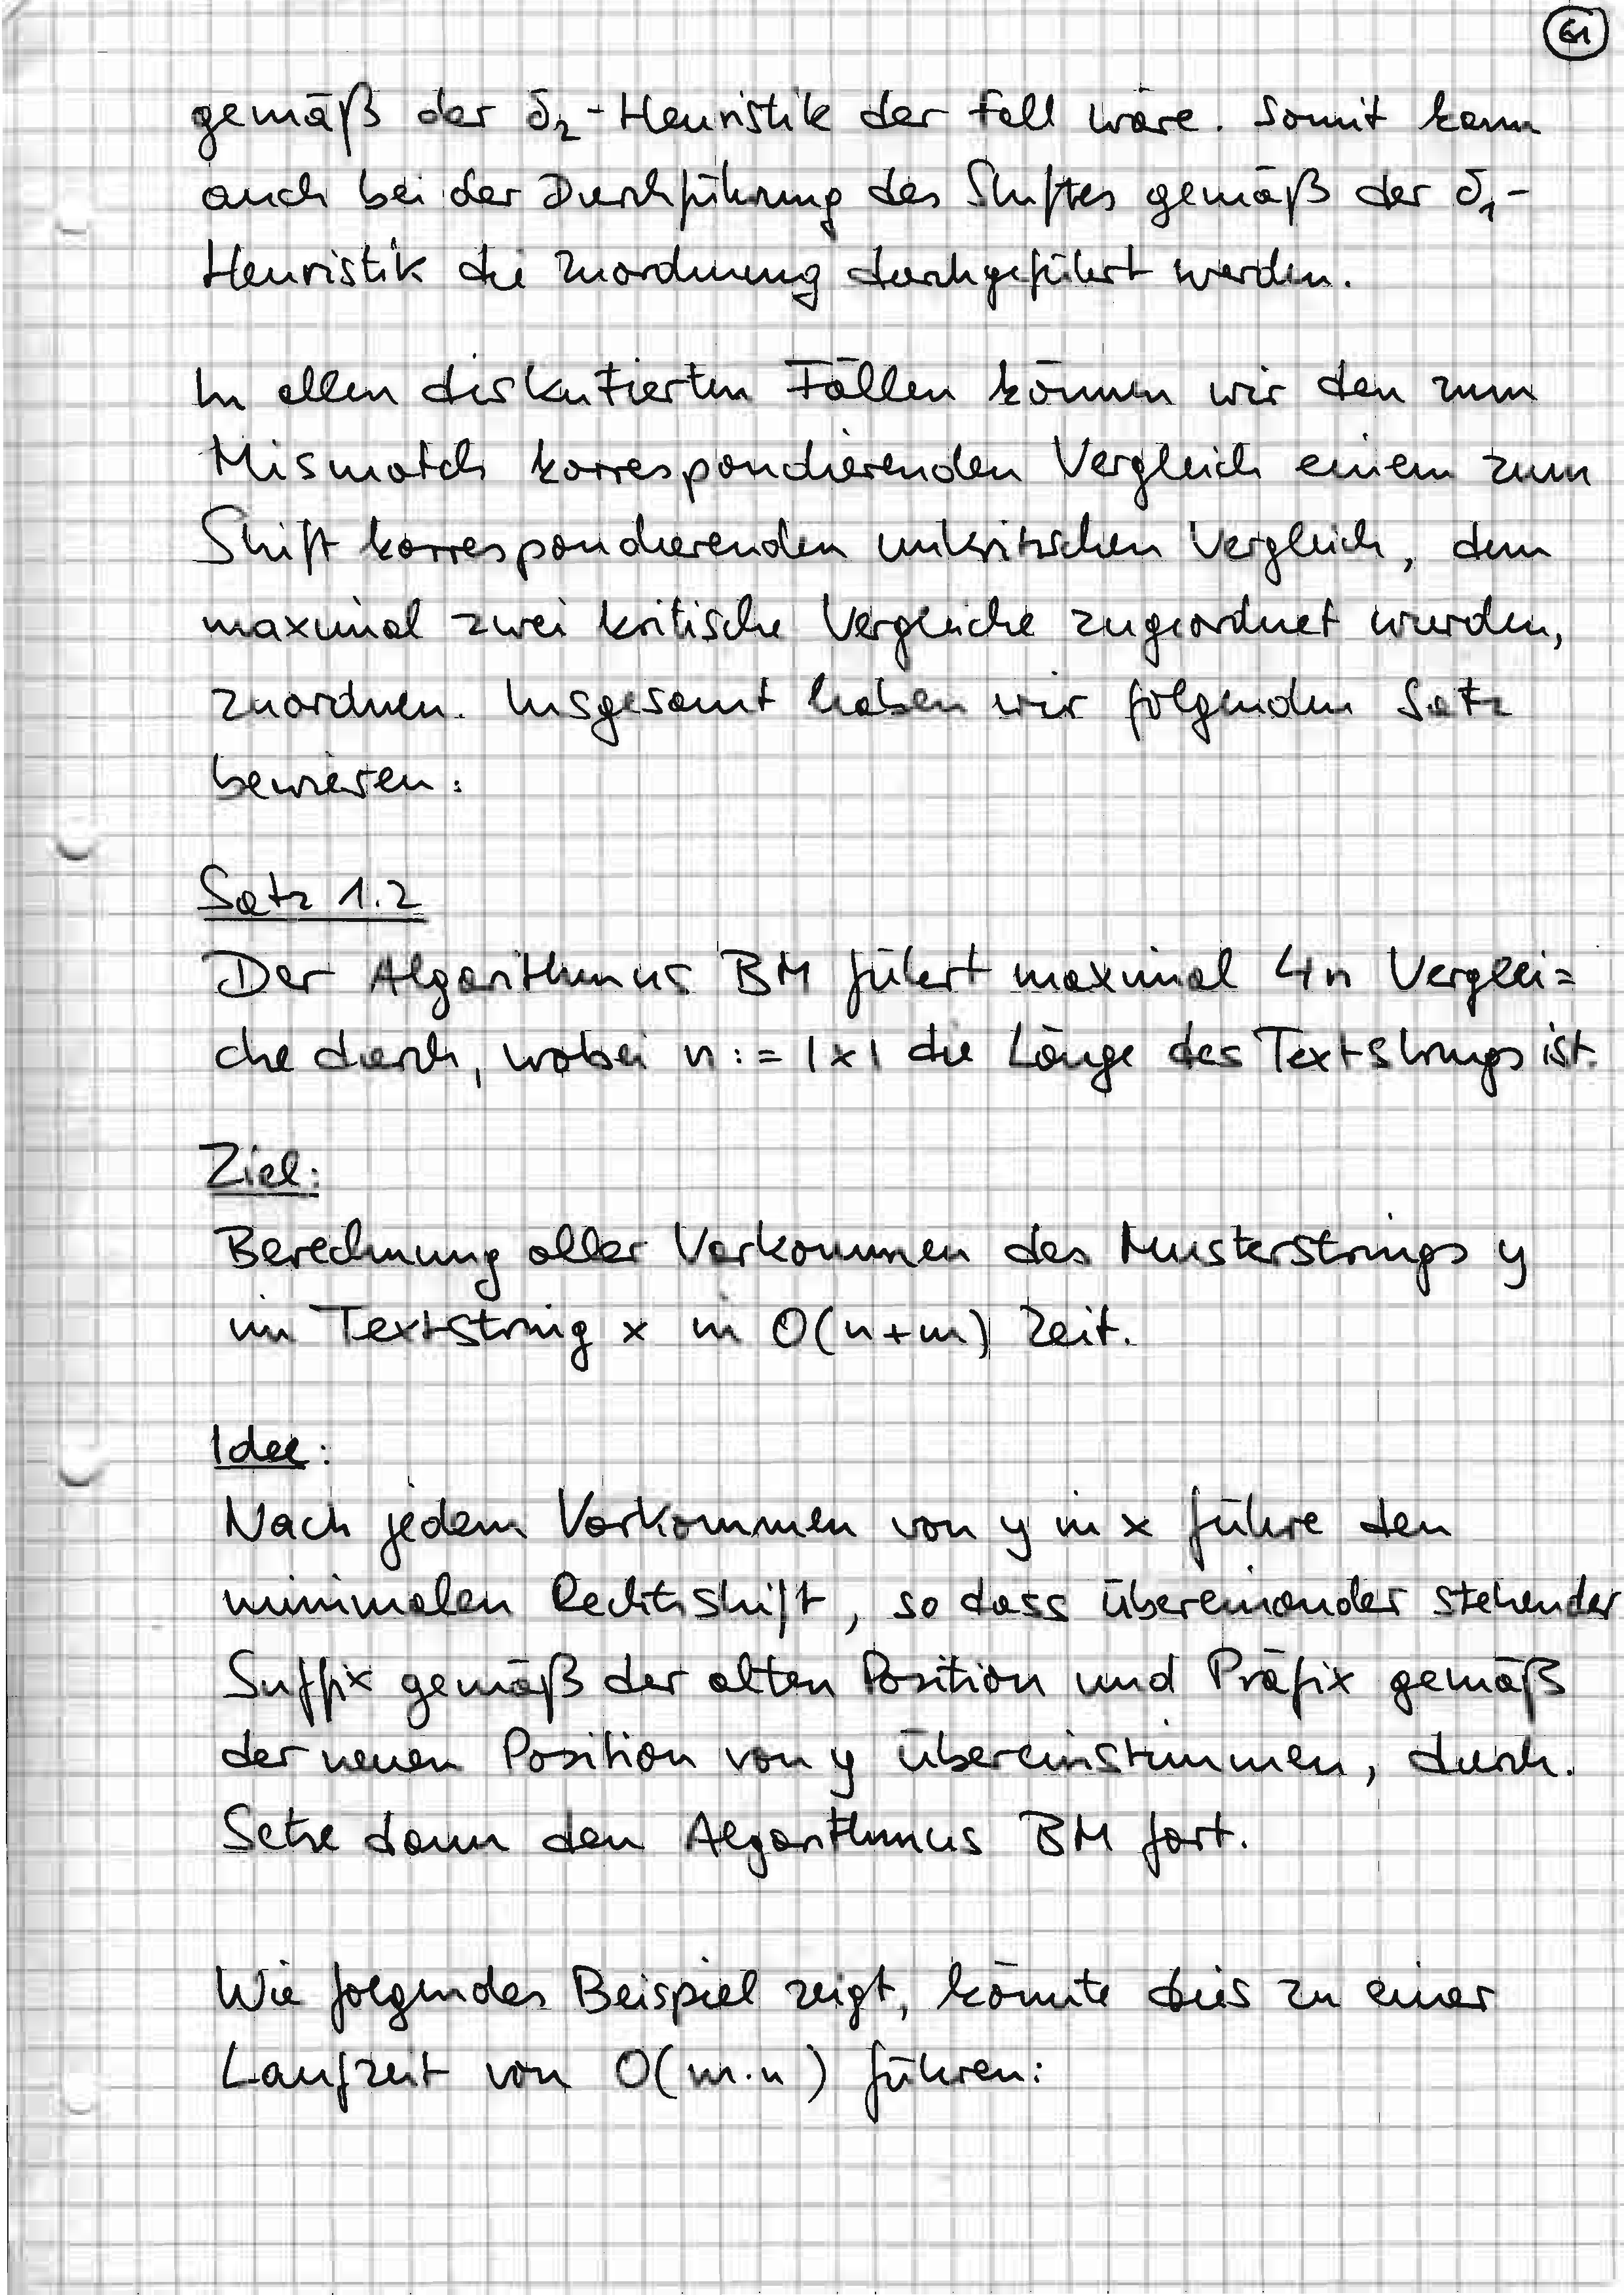 61
gemäß der δ₂-Heuristik der Fall wäre. Somit kann
auch bei der Durchführung des Shiftes gemäß der δ₁-
Heuristik die Zuordnung durchgeführt werden.
In allen diskutierten Fällen können wir den zum
Mismatch korrespondierenden Vergleich einem zum
Shift korrespondierenden unkritischen Vergleich, dem
maximal zwei kritische Vergleiche zugeordnet wurden,
zuordnen. Insgesamt haben wir folgenden Satz
bewiesen:
Satz 1.2
Der Algorithmus BM führt maximal 4n Verglei=
che durch, wobei n := |x| die Länge des Textstrings ist.
Ziel:
Berechnung aller Vorkommen des Musterstrings y
im Textstring x in O(n+m) Zeit.
Idee:
Nach jedem Vorkommen von y in x führe den
minimalen Rechtsshift, so dass übereinander stehender
Suffix gemäß der alten Position und Präfix gemäß
der neuen Position von y übereinstimmen, durch.
Setze dann den Algorithmus BM fort.
Wie folgendes Beispiel zeigt, könnte dies zu einer
Laufzeit von O(m·n) führen: